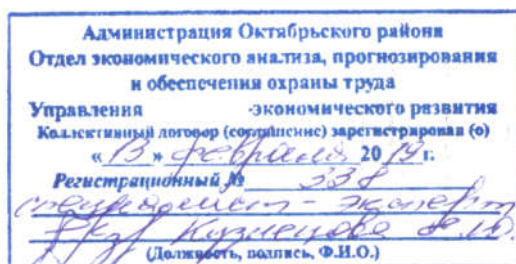 Администрация Октябрьского района
Отдел экономического анализа, прогнозирования
и обеспечения охраны труда
Управления -экономического развития
Коллективный договор (соглашение) зарегистрирован (о)
« 13 » февраля 2019 г.
Регистрационный № 338
специалист - эксперт
Кузнецова
(Должность, подпись, Ф.И.О.)